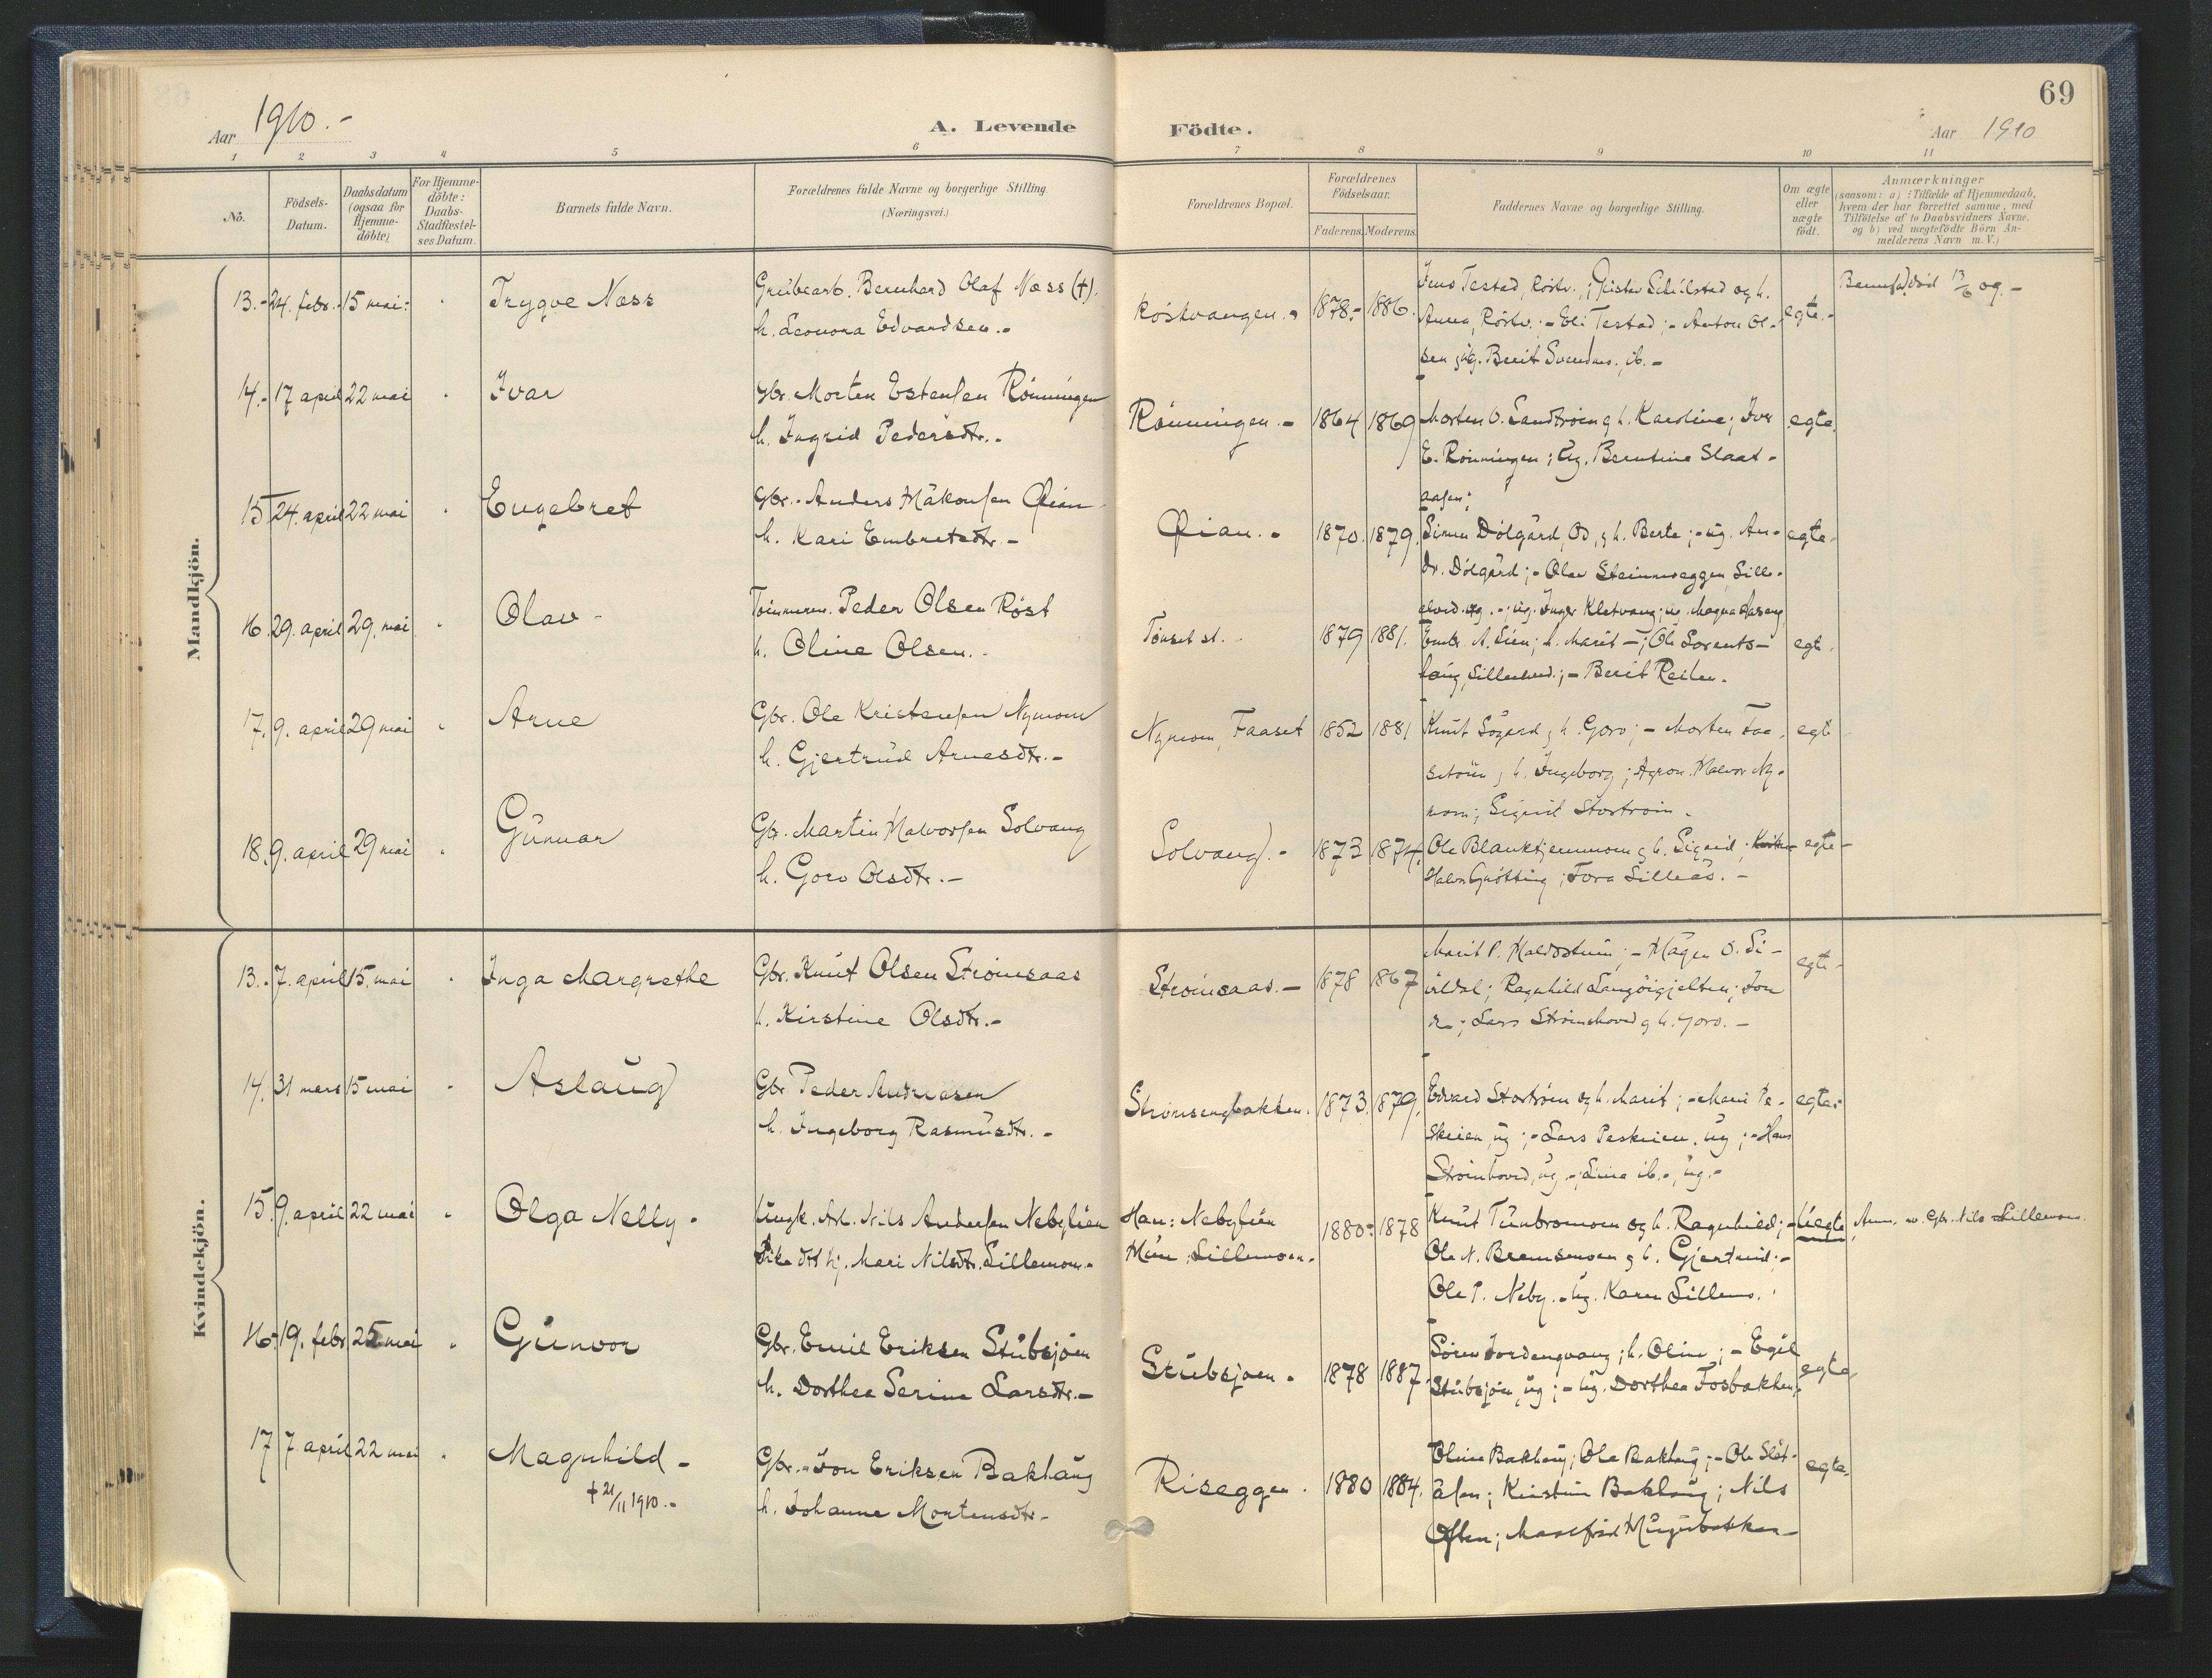 69
Aar 1910.-
A. Levende Födte.
Aar 1910
1 2 3 4 5 6 7 8 9 10 11
No.
Födsels-Datum.
Daabsdatum (ogsaa for Hjemme-döbte;
For Hjemme-döbte: Daabs-Stadfæstel-ses Datum.
Barnets fulde Navn.
Forældrenes fulde Navne og borgerlige Stilling.
(Næringsvei.)
Forældrenes Bopæl.
Forældrenes Födselsaar.
Faderens. Moderens.
Faddernes Navne og borgerlige Stilling.
Om ægte eller uægte födt.
Anmærkninger
(saasom: a) Tilfælde af Hjemmedaab,
hvem der har forrettet samme, med
Tilföielse af to Daabsvidners Navne.
og b) ved uægtefödte Börn An-
melderens Navn m. V.)
Mandkjön.
13.- 24. febr.- 15 mai: Trygve Næss
Grubearb. Bernhard Olaf Næss (+).
h. Leonora Edvardsen.-
Röstvangen.- 1878.- 1886.
Jens Testad, Röstv.;
Anna, Röstv.;- Eli Testad;- Anton Ol-
sen, ug. Berit ib.-
egte.-
död 13/6 09.-
14.- 17 april 22 mai Ivar
Gbr. Morten Estensen Rönningen
h. Ingrid Pedersdtr.-
Rönningen.- 1864 1869
Morten O. Sandtröen og h. Karoline; Iver
E. Rönningen; Ug. Berntine Slaat-
aasen;
egte.
15 24. april 22 mai Engebret
Gbr.- Anders Håkonsen Öian
h. Kari Embretsdtr.-
Öian.- 1870. 1879.
Simen Dölgård, Od, og h. Berte;- ug. An-
dr. Dölgård;- Olav Steinmoeggen, Lille-
elvd. ug.-; ug. Inger Kletvang; ug. Magna Aaseng
egte.
16. 29. april 29. mai Olav-
Tömmerm. Peder Olsen Röst
h. Oline Olsen.-
Tönset st. 1879 1881.
Embr. A. Lien; h. Marit -; Ole Lorents-
haug, Lilleelved.;- Berit Reiten.
egte.
17. 9. april 29 mai Arne
Gbr. Ole Kristensen Nymoen
h. Gjertrud Arnesdtr.-
Nymoen, Faaset 1852 1881
Knut Sögård og h. Goro;- Morten Faa-
settöien og h. Ingeborg; Agron. Halvor Ny-
moen; Sigrid Stortröen.
egte
18. 9. april 29 mai Gunnar
Gbr. Martin Halvorsen Solvang
h. Goro Olsdtr.-
Solvang.- 1873 1874.
Ole Blanktjernmoen og h. Sigrid;
Halvor Grötting; Tora Lilleås.-
egte-
Kvindekjön.
13.- 7. april 15. mai Inga Margrethe
Gbr. Knut Olsen Strömsaas
h. Kirstine Olsdtr.-
Strömsaas.- 1878 1867
Marit P. Halvostuen;- Hågen O. Si-
vildal; Ragnhild Langöigjelten; Jon
Lars Strömshoved og h. Goro.-
egte-
14. 31 mars 15 mai Aslaug
Gbr. Peder Andreasen
h. Ingeborg Rasmusdtr.-
Strömsengbakken. 1873. 1879.
Edvard Stortröen og h. Marit;- Mari Pe-
skeien ug;- Lars Peskeien, ug;- Hans
Strömhoved, ug.-; Lina ib.-, ug.-
egte.
15. 9. april 22 mai Olga Nelly.
Ungk. Arb. Nils Andersen Nebylien
Pike dtt hj. Mari Nilsdtr. Lillemoen.-
Han: Nebylien
Hun: Lillemoen.- 1880: 1878
Knut Tunbromoen og h. Ragnhild;-
Ole N. Bremsmoen og h. Gjertrud;-
Ole P. Neby.- ug. Karen Lillemo.
uegte Anm. av Gbr. Nils Lillemoen.
16.- 19. febr 25 mai Gunvor
Gbr. Emil Eriksen Stubsjöen
h. Dorthea Serine Larsdtr.-
Stubsjoen. 1878 1887.
Sören Jordengvang; h. Oline;- Egil
Stubsjöen, ug;- ug. Dorthea Fosbakken,
egte
17 7. april 22 mai Magnhild-
+ 21/11 1910.-
Gbr.- Jon Eriksen Bakhaug
h. Johanne Mortensdtr.-
Riseggen. 1880 1884.
Oline Bakhaug; Ole Bakhaug;- Ole Slåt-
åsen; Kirstine Bakhaug; Nils
Often;
egte.